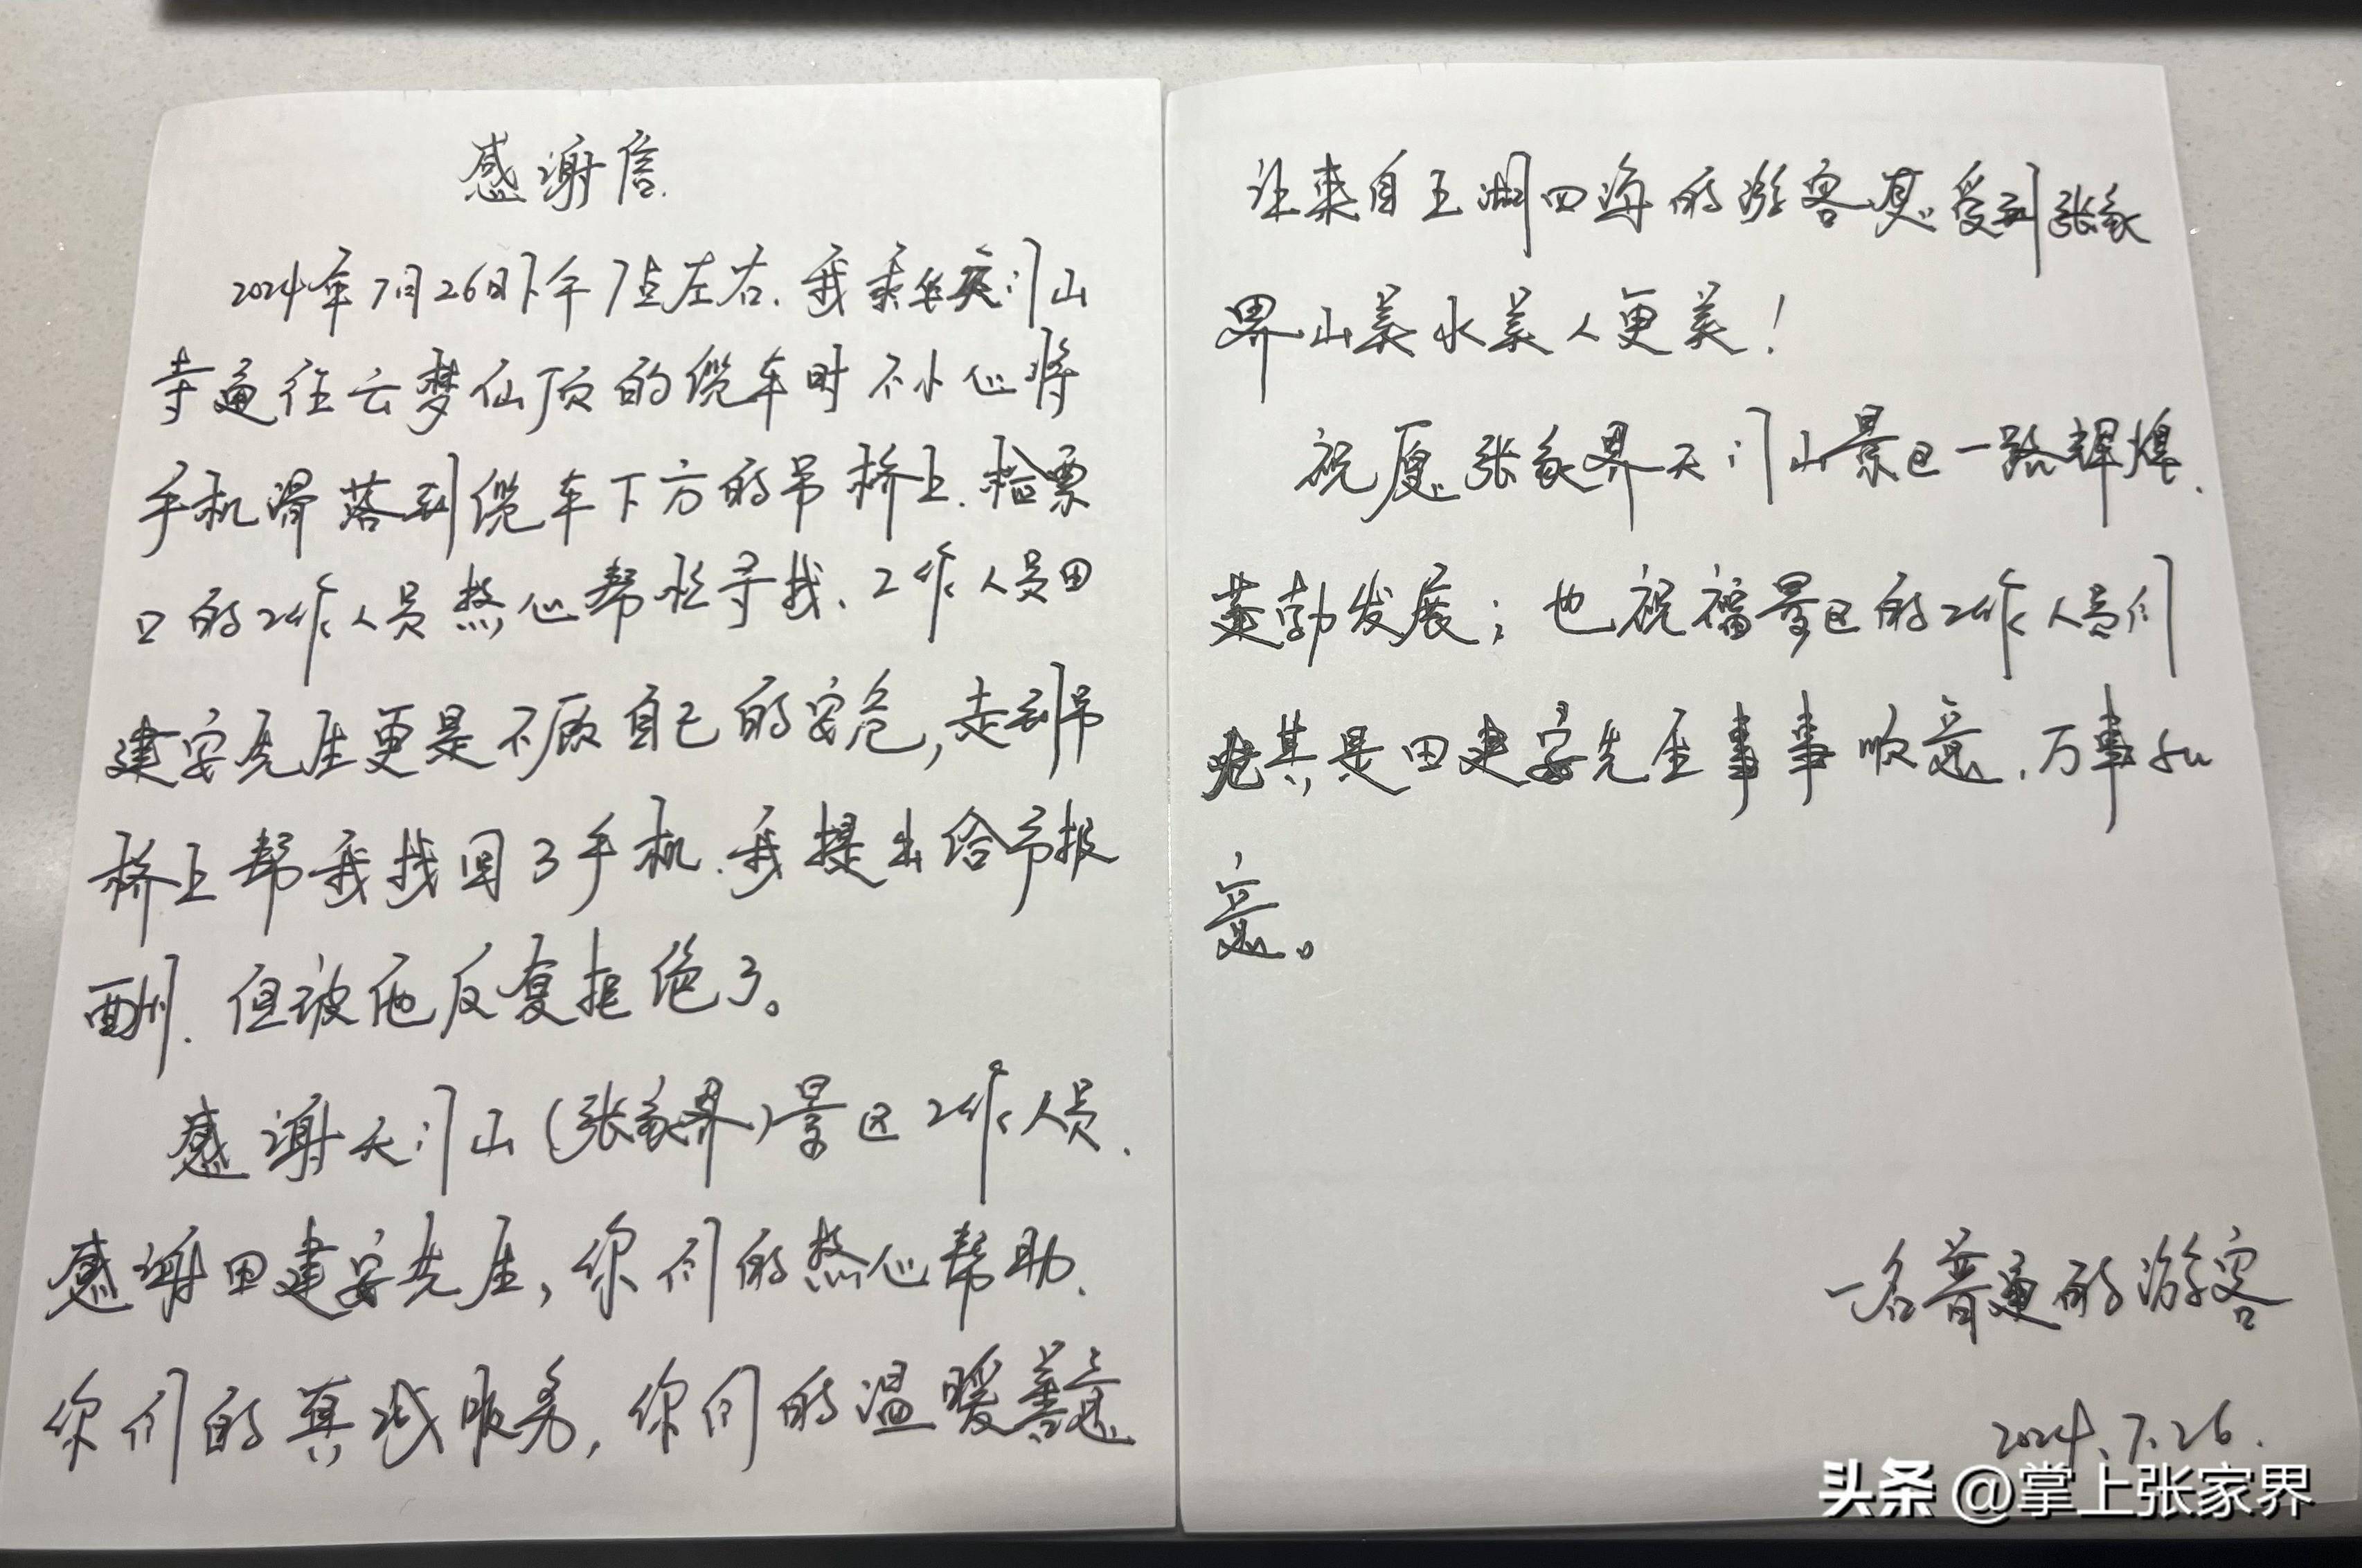 感谢信
2024年7月26日下午1点左右.我乘坐天门山
寺通往云梦仙顶的缆车时不小心将
手机滑落到缆车下方的吊桥上.检票
口的工作人员热心帮忙寻找、工作人员田
建安先生更是不顾自己的安危,走到吊
桥上帮我找回了手机.我提出给予报
酬.但被他反复拒绝了。
感谢天门山(张家界)景区工作人员.
感谢田建安先生,你们的热心帮助.
你们的真诚服务,你们的温暖善意
让来自五湖四海的游客感受到张家
界山美水美人更美!
祝愿张家界天门山景区一路辉煌.
蓬勃发展;也祝福景区的工作人员们
尤其是田建安先生事事顺意.万事如
意。
一名普通的游客
2024.7.26.
头条@掌上张家界